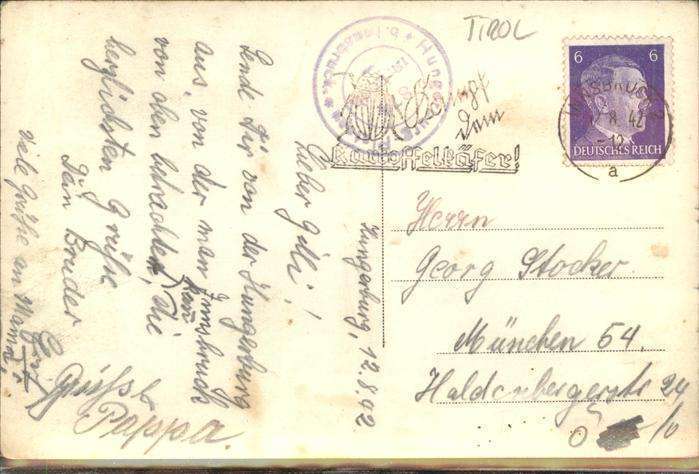 TIROL
Hungerburg
b. Innsbruck
Kampf
dem
Kartoffelkäfer!
6 6
DEUTSCHES REICH
INNSBRUCK
8.42
a
Hungerburg, 12.8.42
Lieber Gilli!
Sende Dir von der Hungerburg
aus, von der man Innsbruck
von oben betrachten kann, die
herzlichsten Grüße
Dein Bruder
viele Grüße an Mama.
Grüsse
Pappa.
Herrn
Georg Stocker
München 54.
Haldenbergerstr 24